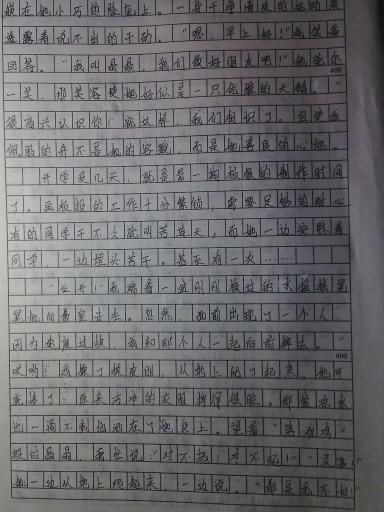 嵌在她小巧的脸庞上。一身干净清爽的运动装
透露着说不出的干劲。“嗯，早上好！”我笑着
回答。“我叫晶晶，我们做好朋友吧！”她莞尔
400
一笑，那笑容使她好似是一只优雅的天鹅。“
很高兴认识你！”就这样，我们相识了。但使我
佩服的并不是她的容貌，而是她善良的心地。
开学没几天，就是第一期板报的制作时间
了。画板报的工作十分繁锁，需要足够的耐心
有的同学干不久就叫苦连天，而她一边安慰着
同学 一边埋头苦干。甚至有一次……
“让开！”我端着一盆刚刚 的水摇摇晃
晃地向教室走去。忽然，我前出现了一个人，
因为速度过快，我和那个人一起向前摔去。“
600
哎哟！”我揉了揉皮肤，从地上爬了起来。她可
就惨了：原来洁净的衣服摔得很脏。那盆水
也一滴不剩地泼在了她身上。望着“落汤鸡”
般的晶晶，我连说：“对不起！对不起！”“没事！”
她一边从地上爬起来，一边说。“都是我不好！”